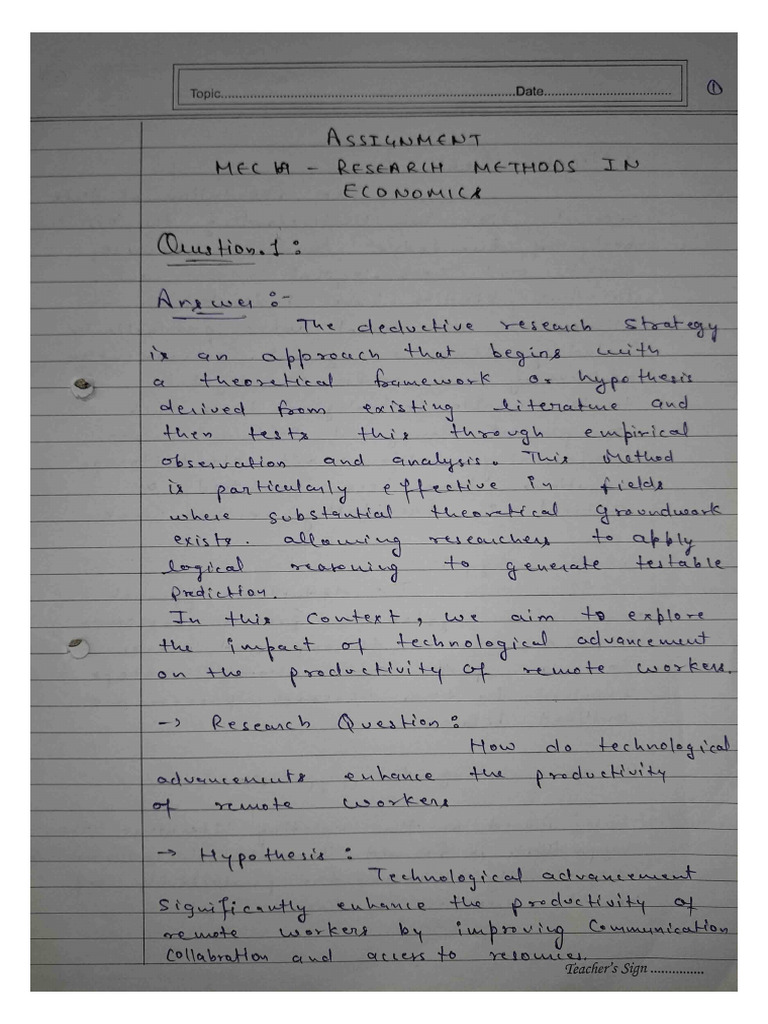 Topic.....................................................................................Date...................................
①
ASSIGNMENT
MEC - RESEARCH METHODS IN
ECONOMICS
Question.1:
Answer :-
The deductive research strategy
is an approach that begins with
a theoretical framework or hypothesis
derived from existing literature and
then tests this through empirical
observation and analysis. This Method
is particularly effective in fields
where substantial theoretical groundwork
exists. allowing researchers to apply
logical reasoning to generate testable
prediction.
In this context, we aim to explore
the impact of technological advancement
on the productivity of remote workers.
→ Research Question:
How do technological
advancements enhance the productivity
of remote workers
→ Hypothesis:
Technological advancement
significantly enhance the productivity of
remote workers by improving Communication
Collabration and access to resources.
Teacher's Sign ...............